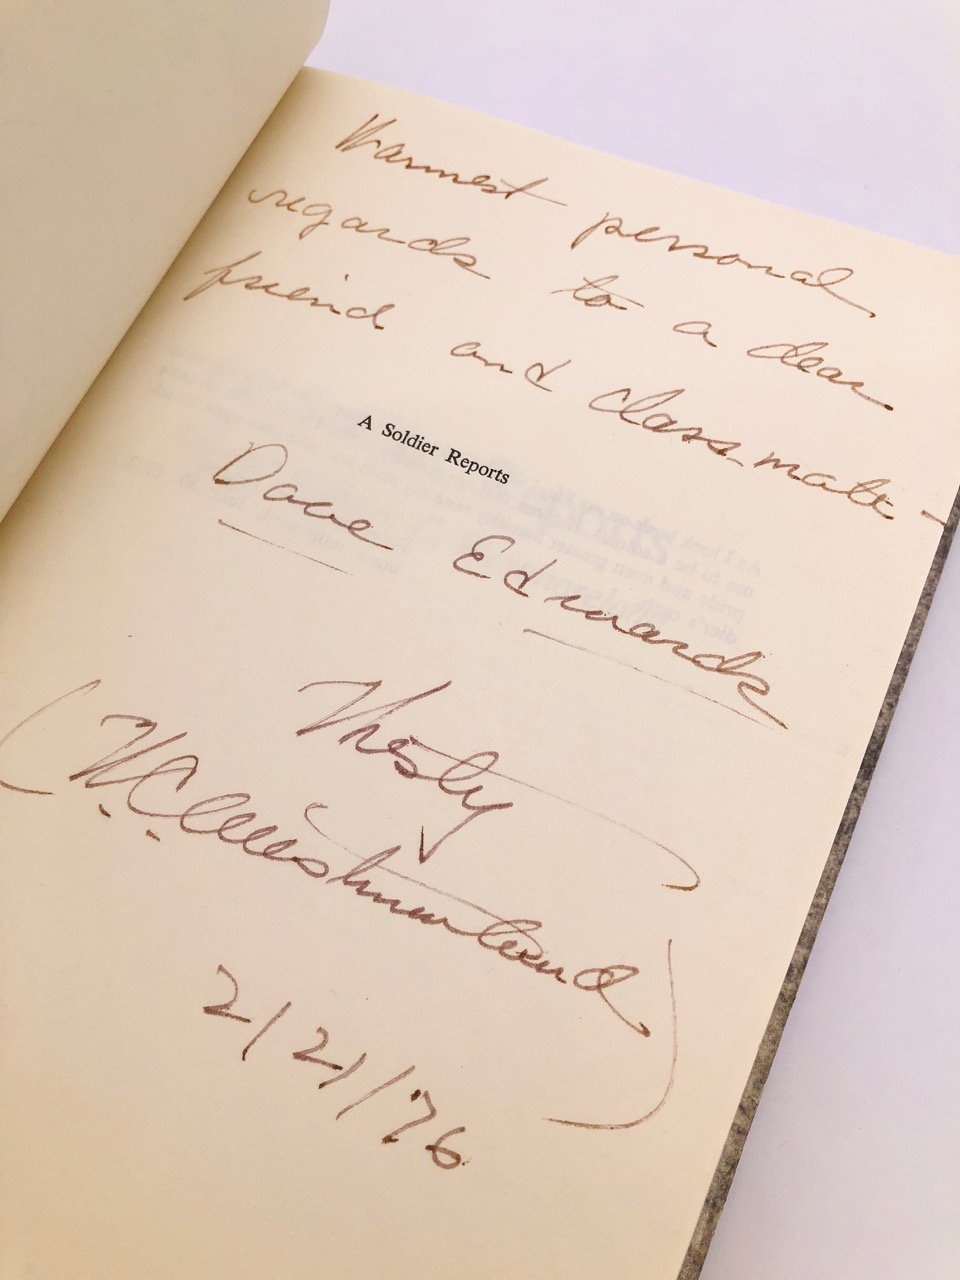 Warmest personal
regards to a dear
friend and classmate -
A Soldier Reports
Dave Edwards
Westy
(W.C. Westmoreland)
2/21/76